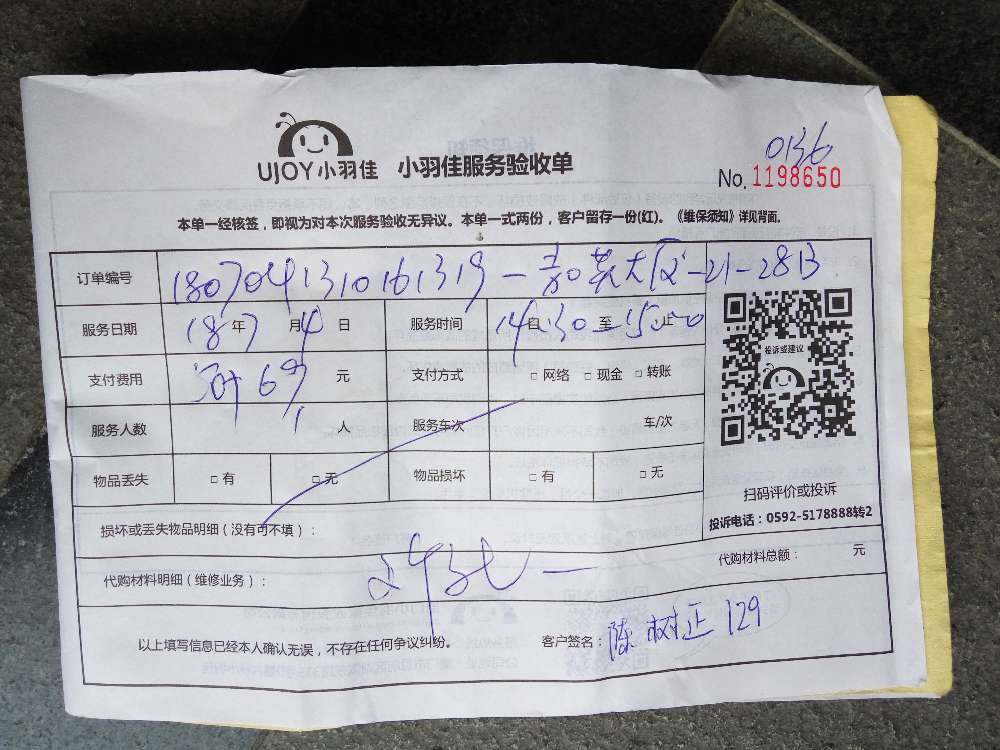 0136
UJOY小羽佳 小羽佳服务验收单 No.1198650
本单一经核签，即视为对本次服务验收无异议。本单一式两份，客户留存一份(红)。《维保须知》详见背面。
订单编号 1807041310161319-嘉英大厦-21-2813
服务日期 18年7月4日 服务时间 14:30至15:00止
支付费用 69元 支付方式 □网络 □现金 □转账
投诉或建议
服务人数 1人 服务车次 车/次
物品丢失 □有 □无 物品损坏 □有 □无
扫码评价或投诉
损坏或丢失物品明细（没有可不填）：
投诉电话：0592-5178888转2
代购材料明细（维修业务）：
代购材料总额： 元
以上填写信息已经本人确认无误，不存在任何争议纠纷。 客户签名：陈树正 129